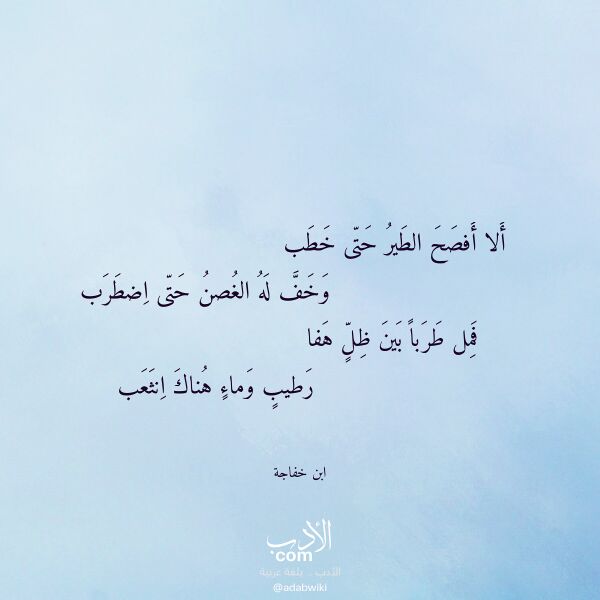 أَلا أَفصَحَ الطَيرُ حَتّى خَطَب
وَخَفَّ لَهُ الغُصنُ حَتّى اِضطَرَب
فَمِل طَرَباً بَينَ ظِلٍّ هَفا
رَطيبٍ وَماءٍ هُناكَ اِنثَعَب
ابن خفاجة
الأدب
com
الأدب .. بلغة عربية
@adabwiki